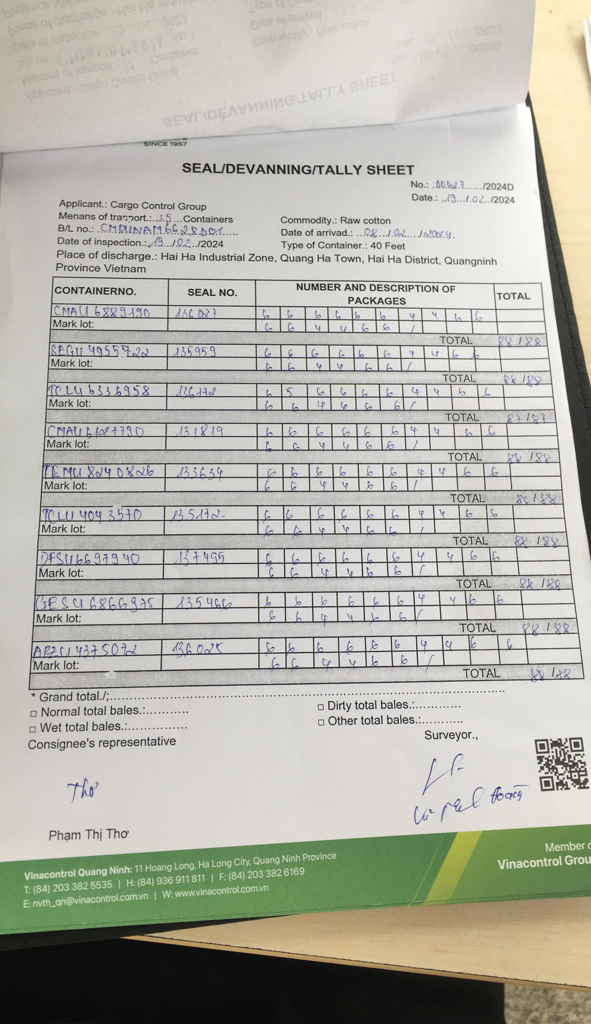 SINCE 1957
SEAL/DEVANNING/TALLY SHEET
No.: /2024D
Date.: 19 / 02 /2024
Applicant.: Cargo Control Group
Menans of transport.: 35 Containers
Commodity.: Raw cotton
B/L no.:
Date of arrivad.: 08 / 02 / 2024
Date of inspection.: 19 /02 /2024
Type of Container.: 40 Feet
Place of discharge.: Hai Ha Industrial Zone, Quang Ha Town, Hai Ha District, Quangninh
Province Vietnam
CONTAINERNO. SEAL NO. NUMBER AND DESCRIPTION OF PACKAGES TOTAL
CMAU 6889190 136087 6 6 6 6 6 6 4 4 6 6
Mark lot: 6 6 4 4 6 6 /
TOTAL 88/88
SEGU 4955722 135959 6 6 6 6 6 6 4 4 6 6
Mark lot: 6 6 4 4 6 6 /
TOTAL 88/88
TCLU 6336958 136172 6 5 6 6 6 6 4 4 6 6
Mark lot: 6 6 4 4 6 6 /
TOTAL 87/87
CMAU 6127790 131819 6 6 6 6 6 6 4 4 6 6
Mark lot: 6 6 4 4 6 6 /
TOTAL 88/88
TEMU 8240826 133634 6 6 6 6 6 6 4 4 6 6
Mark lot: 6 6 4 4 6 6 /
TOTAL 88/88
TCLU 404 3570 135172 6 6 6 6 6 6 4 4 6 6
Mark lot: 6 6 4 4 6 6 /
TOTAL 88/88
DFSU 6697940 137495 6 6 6 6 6 6 4 4 6 6
Mark lot: 6 6 4 4 6 6 /
TOTAL 88/88
GESU 6866975 135466 6 6 6 6 6 6 4 4 6 6
Mark lot: 6 6 4 4 6 6 /
TOTAL 88/88
APZU 4375072 136025 6 6 6 6 6 6 4 4 6 6
Mark lot: 6 6 4 4 6 6 /
TOTAL 88/88
* Grand total./:
□ Normal total bales.:
□ Dirty total bales.:
□ Wet total bales.:
□ Other total bales.:
Consignee's representative
Surveyor.,
Thơ
Phạm Thị Thơ
Vinacontrol Quang Ninh: 11 Hoang Long, Ha Long City, Quang Ninh Province
T: (84) 203 382 5535 | H: (84) 936 911 811 | F: (84) 203 382 6169
E: nvth_qn@vinacontrol.com.vn | W: www.vinacontrol.com.vn
Member
Vinacontrol